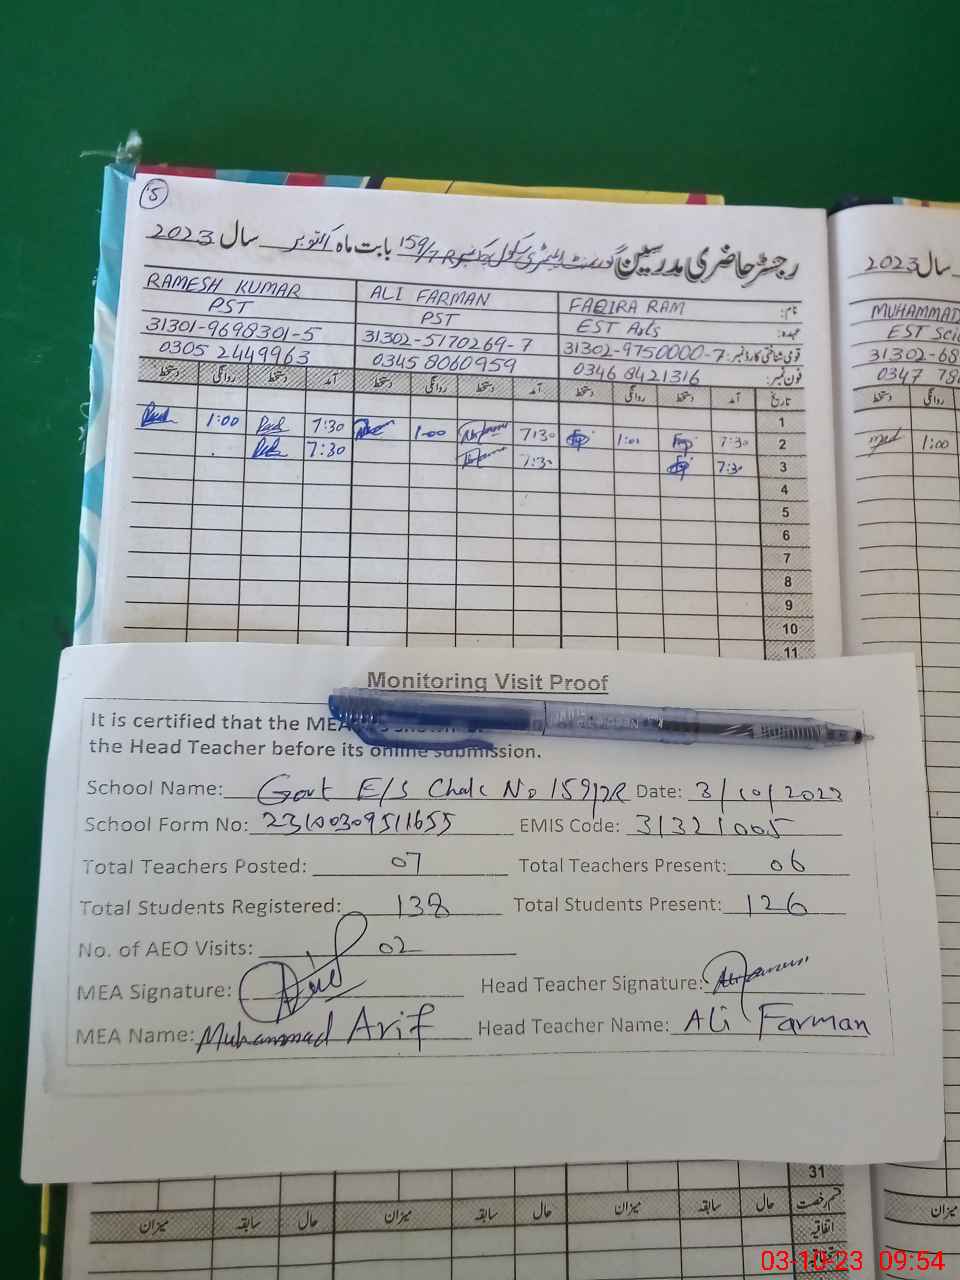 5
رجسٹر حاضری مدرسین گورنمنٹ ایلیمنٹری سکول چک نمبر 159/7R بابت ماہ اکتوبر سال 2023
سال 2023
نام: FAQIRA RAM ALI FARMAN RAMESH KUMAR
عہدہ: EST Arts PST PST
قومی شناختی کارڈ نمبر: 31302-9750000-7 31302-5170269-7 31301-9698301-5
فون نمبر: 0346 8421316 0345 8060959 0305 2449963
MUHAMMAD
EST Sci
31302-68
0347 78
تاریخ آمد دستخط روانگی دستخط آمد دستخط روانگی دستخط آمد دستخط روانگی دستخط
روانگی دستخط
1
2 7:30 1:00 7:30 1:00 7:30 1:00
1:00
3 7:30 7:30 7:30
4
5
6
7
8
9
10
11
Monitoring Visit Proof
It is certified that the MEA
the Head Teacher before its online submission.
School Name: Govt E/S Chak No 159/7R Date: 3/10/2023
School Form No: 23100309511655 EMIS Code: 31321005
Total Teachers Posted: 07 Total Teachers Present: 06
Total Students Registered: 138 Total Students Present: 126
No. of AEO Visits: 02
MEA Signature: Head Teacher Signature:
MEA Name: Muhammad Arif Head Teacher Name: Ali Farman
31
قسم رخصت حال سابقہ میزان حال سابقہ میزان حال سابقہ میزان
میزان
اتفاقیہ
03-10-23 09:54